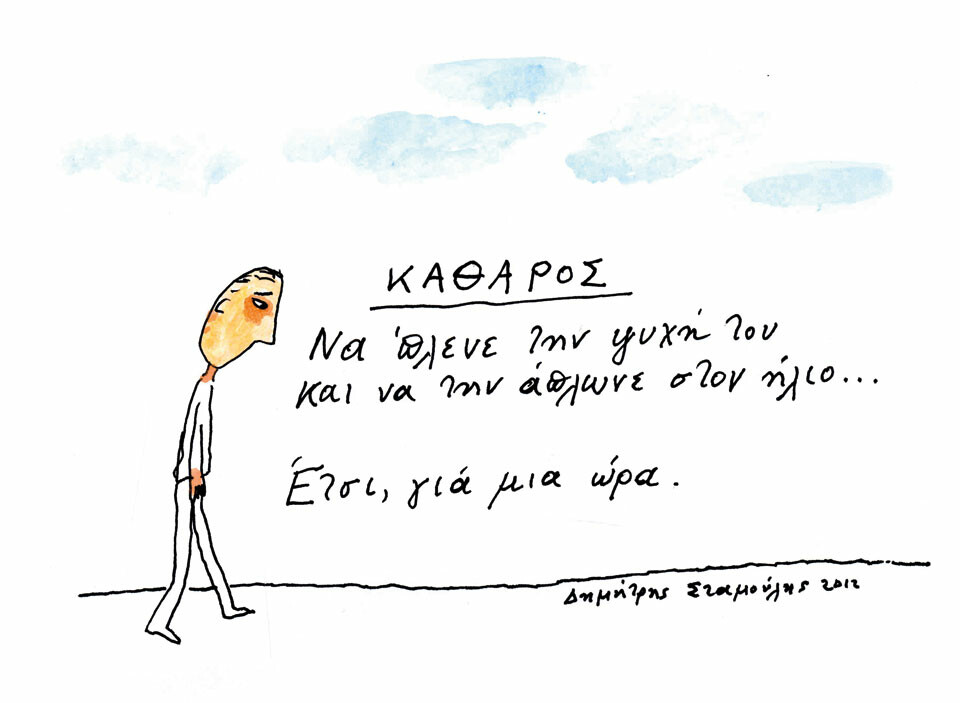 ΚΑΘΑΡΟΣ
Να 'πλενε την ψυχή του
και να την άπλωνε στον ήλιο...
Έτσι, γιά μια ώρα.
Δημήτρης Σταμούλης 2012